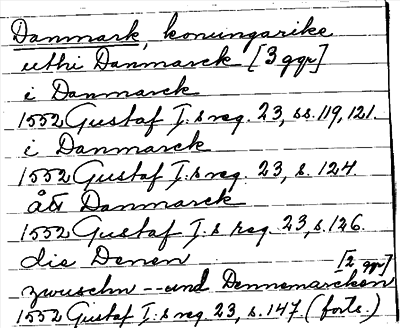 Danmark, konungarike
uthi Danmarck [3 ggr]
i Danmarck
1552 Gustaf I:s reg. 23, ss. 119, 121.
i Danmarck
1552 Gustaf I:s reg. 23, s. 124
ått Danmarck
1552 Gustaf I:s reg. 23, s. 126.
die Denen [2 ggr]
zwuschn -- und Dennemarcken
1552 Gustaf I:s reg. 23, s. 147. (forts.)